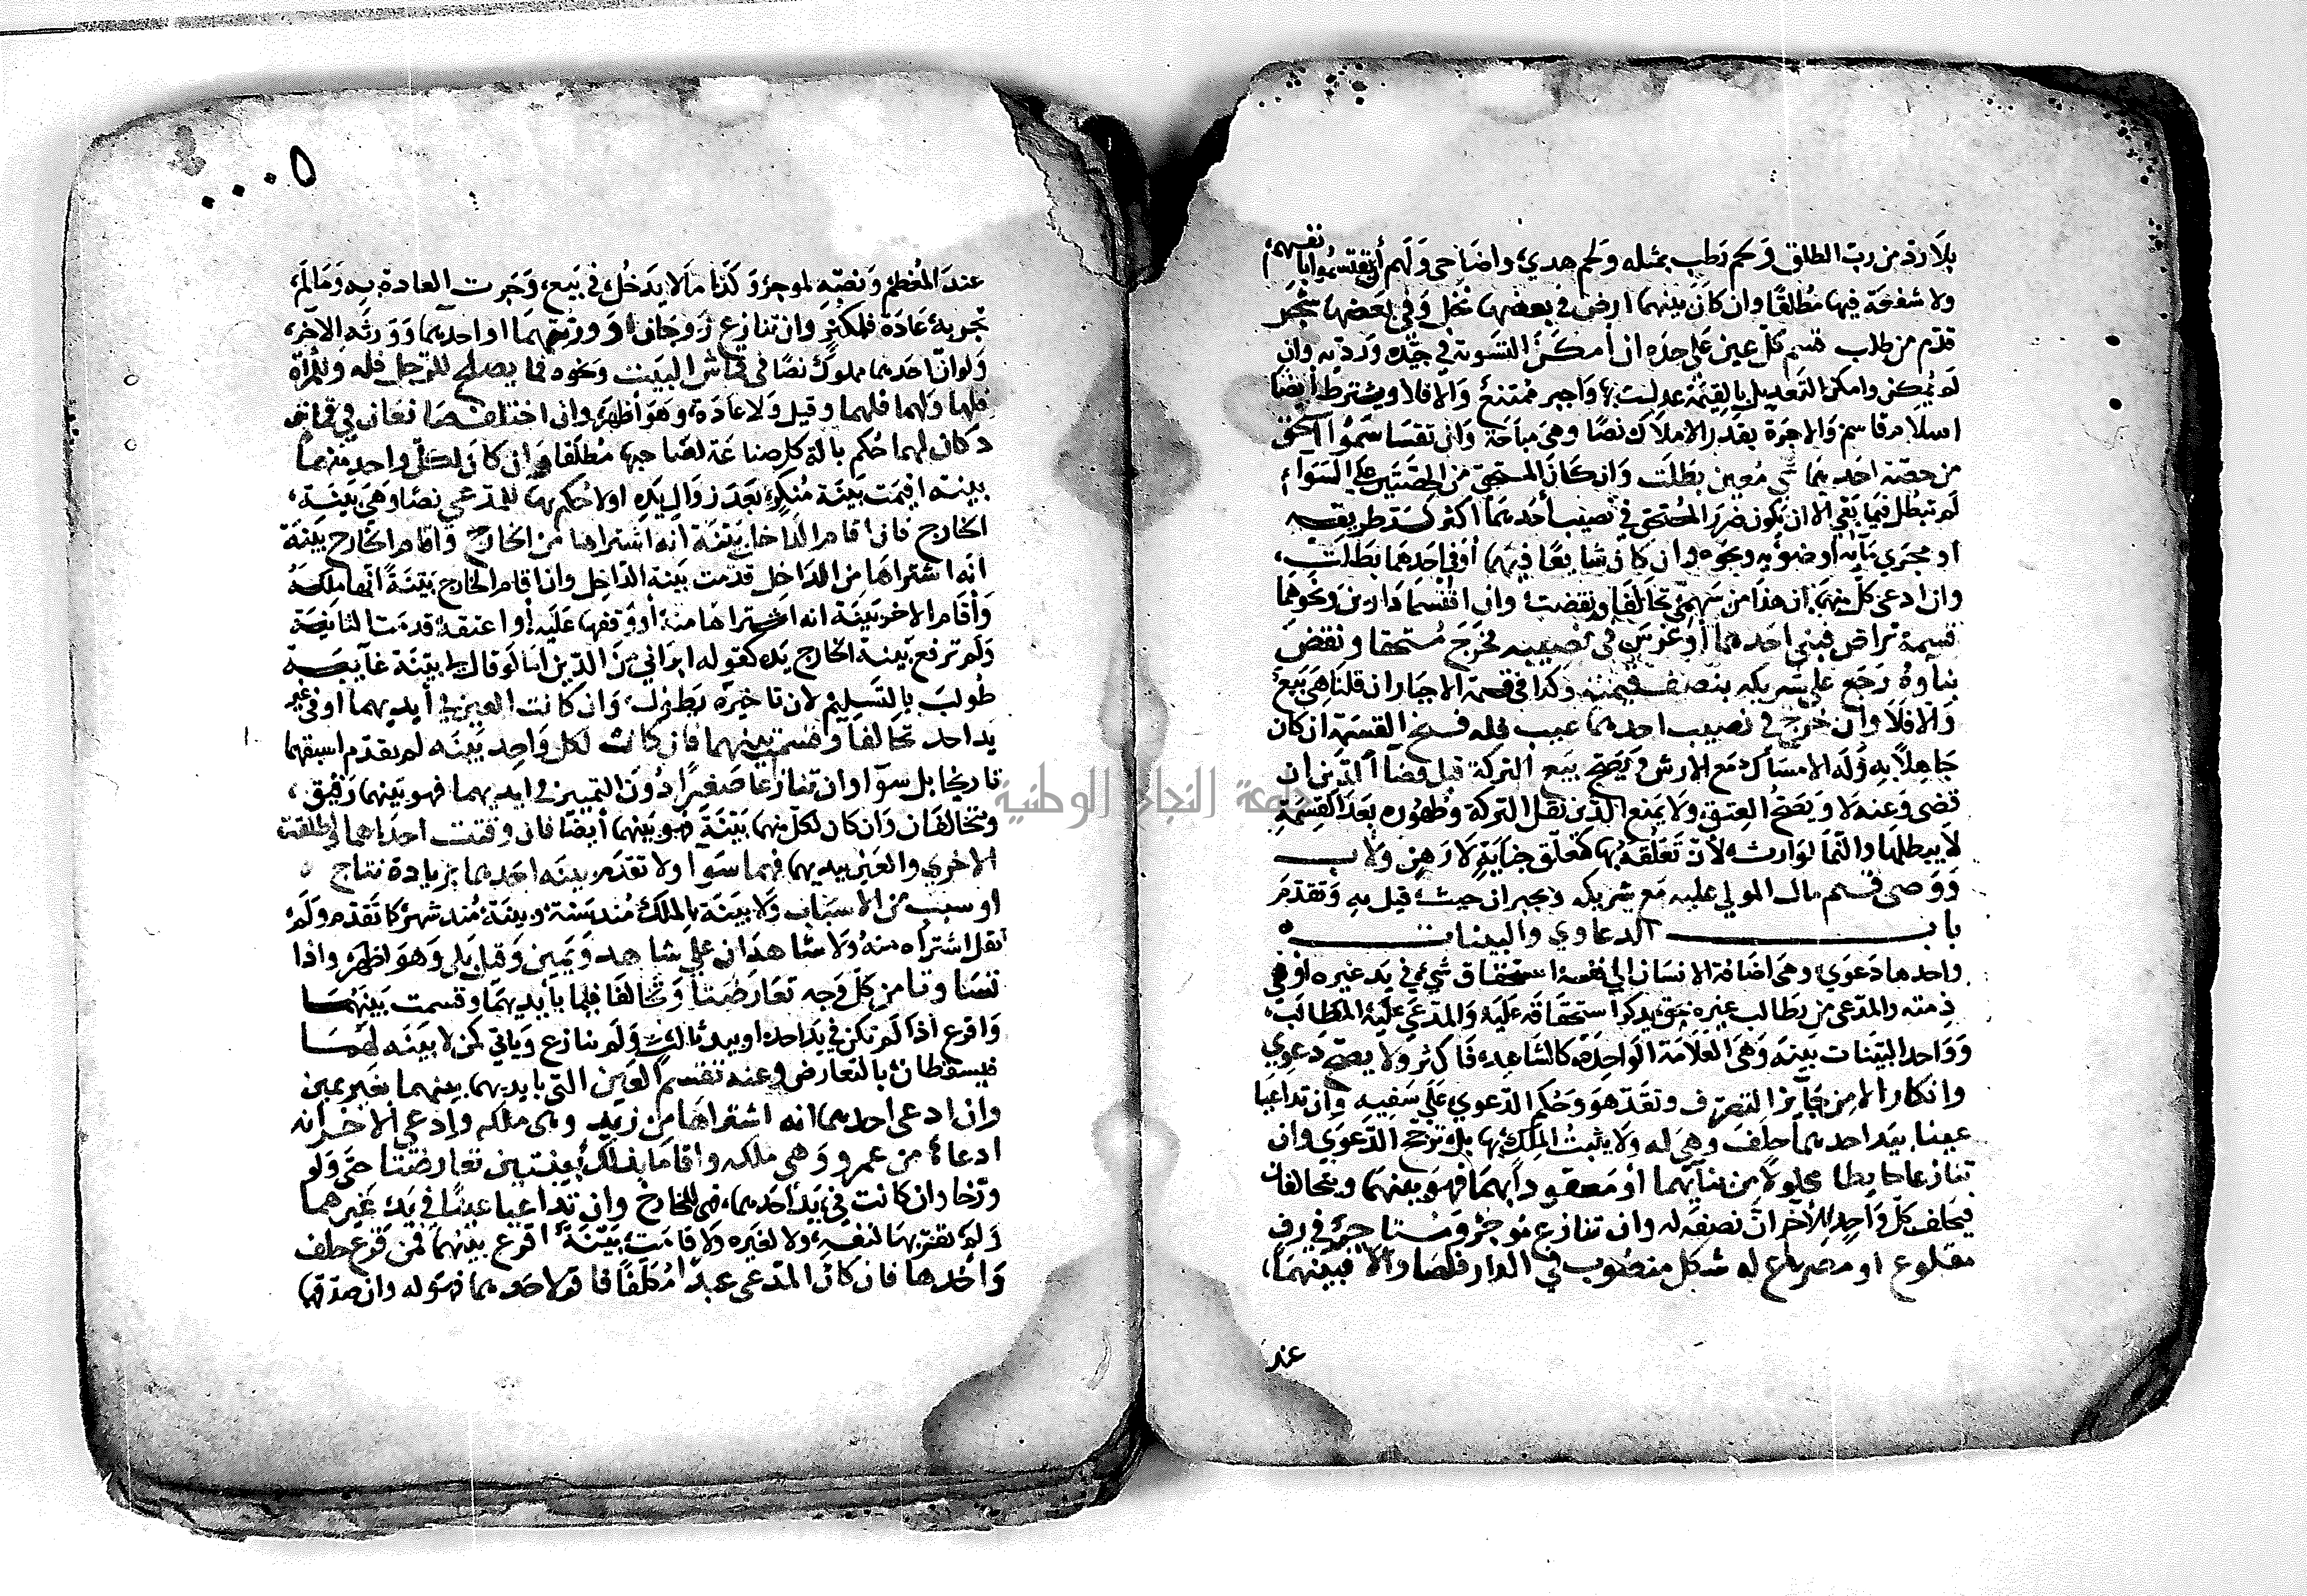 بلا رد من رب الطلق ولحم رطب بمثله ولحم هدي واضاحي ولهم أن يقتسموا بأنفسهم
ولا شفعة فيها مطلقا وان كان بينهما ارض في بعضها نخل وفي بعضها شجر
قدم من طلب قسم كل عين على حده ان أمكن التسوية في جيده ورديه وان
لم يمكن وامكن التعديل بالقيمة عدلت بها واجبر ممتنع والا فلا ويشترط ايضا
اسلام قاسم والاجرة بقدر الاملاك نصا وهي مباحة وان تقاسما ثم استحق
من حصة احدهما شي معين بطلت وان كان المستحق من الحصتين على السواء
لم تبطل فيما بقي الا ان يكون ضرر المستحق في نصيب أحدهما اكثر كسد طريقه
او مجري مآيه او ضوئه ونحوه وان كان شايعا فيهما أو في احدهما بطلت
وان ادعى كل منهما ان هذا من سهمي تحالفا ونقضت وان اقتسما دارين ونحوهما
قسمة تراض فبنى احدهما أو غرس في نصيبه فخرج مستحقا ونقض
بناوه رجع على شريكه بنصف قيمته وكذا في قسمة الاجبار ان قلنا هي بيع
والا فلا وان خرج في نصيب احدهما عيب فله فسخ القسمة ان كان
جاهلا به وله الامساك مع الارش ويصح بيع التركة قبل قضآ الدين ان
قضى وعنه لا ويصح العتق ولا يمنع الدين نقل التركة وظهوره بعد القسمة
لا يبطلها والنما لوارث لأن تعلقه بها كتعلق جناية لا رهن ولاب
ووصي قسم مال المولي عليه مع شريكه ويجبران حيث قيل به وتقدم
باب الدعاوي والبينات
واحدها دعوي وهي اضافة الانسان الي نفسه استحقاق شيء في يد غيره او في
ذمته والمدعى من يطالب غيره بحق يذكر استحقاقه عليه والمدعي عليه المطالب
وواحد البينات بينة وهي العلامة الواحدة كالشاهد فاكثر ولا يصح دعوي
وانكار الا من جآئز التصرف وتقدم هو وحكم الدعوي على سفيه وان تداعيا
عينا بيد احدهما حلف وهي له ولا يثبت الملك بها بل ترجح الدعوي وان
تنازعا حايطا محلولا من بنآيهما أو معقودا بهما فهو بينهما ويتحالفان
فيحلف كل واحد للآخر ان نصفه له وان تنازع موجر ومستاجر في رف
مقلوع او مصراع له شكل منصوب في الدار فلها والا فبينهما
عند
عند المعظم ونصه لموجر وكذا ما لا يدخل في بيع وجرت العادة به وما لم
تجر به عادة فلمكتر وان تنازع زوجان او ورثتهما او احدهما وورثه الآخر
ولو ان احدهما مملوك نصا في قماش البيت ونحوه فما يصلح للرجل فله وللمرأة
فلها ولهما فلهما وقيل ولا عادة وهو أظهر وان اختلف صانعان في قماش
دكان لهما حكم بالة كل صناعة لصاحبها مطلقا وان كان لكل واحد منهما
بينه اقيمت بينة منكر بعد زوال يده اولا حكم بها للمدعي نصا وهي بينة
الخارج فان اقام الداخل بينة أنه اشتراها من الخارج واقام الخارج بينة
انه اشتراها من الداخل قدمت بينة الداخل وان اقام الخارج بينة انها ملكه
وأقام الاخر بينة انه اشتراها منه أو وقفها عليه أو اعتقه قدمت الثانية
ولم ترفع بينة الخارج يده كقوله ابراني من الدين اما لو قال لي بينة غآيبة
طولب بالتسليم لان تاخيره يطول وان كانت العين في أيديهما او في غير
يد احد تحالفا وقسم بينهما فان كانت لكل واحد بينه لم يقدم اسبقهما
تاريخا بل سوآ وان تنازعا صغيرا دون التمييز في ايديهما فهو بينهما رقيق
ويتحالفان وان كان لكل منهما بينة فهو بينهما أيضا فان وقتت احداهما واطلقت
الاخري والعين بيديهما فهما سوآ ولا تقدم بينه احدهما بزيادة نتاج
او سبب من الاسباب ولا بينة بالملك منذ سنة وبينة منذ شهر كما تقدم ولم
تقل اشتراه منه ولا شاهدان على شاهد ويمين وقيل بلى وهو اظهر واذا
تساوتا من كل وجه تعارضتا وتحالفا فيما بأيديهما وقسمت بينهما
واقرع اذا لم تكن في يد احد او بيد ثالث ولم ينازع وياتي كمن لا بينه لهما
فيسقطان بالتعارض وعنه تقسم العين التي بايديهما بينهما بغير يمين
وان ادعى احدهما انه اشتراها من زيد وهي ملكه وادعي الاخر انه
ادعاه من عمرو وهي ملكه واقاما بذلك بينتين تعارضتا حتى ولو
ارخا وان كانت في يد احدهما فهي للخارج وان تداعيا عينا في يد غيرهما
ولم يقر بها لنفسه ولا لغيره ولا قامت بينة اقرع بينهما فمن قرع حلف
وأخذها فان كان المدعى عبدا مكلفا فاقر لاحدهما فهو له وان صدقهما